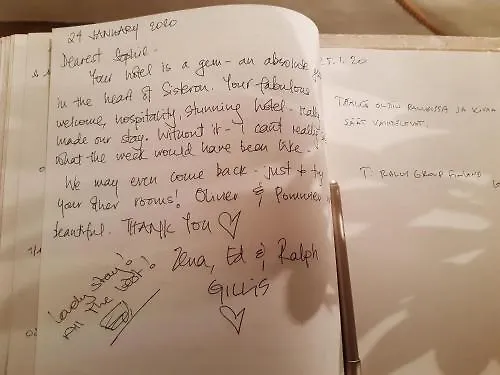 24 JANUARY 2020
Dearest Sophie.
Your hotel is a gem - an absolute
in the heart of Sisteron. Your fabulous
welcome, hospitality, stunning hotel - really
made our stay. Without it - I can't really
what the week would have been like.
We may even come back - just to try
your other rooms! Oliver &
beautiful. THANK YOU ♡
Zena, Ed & Ralph
GILLIS
♡
Lovely stay!
All the best!
25.1.20
OLTIIN RALLISSA JA KIVAA
SÄÄT VAIHTELEVAT.
T: RALLY GROUP FINLAND